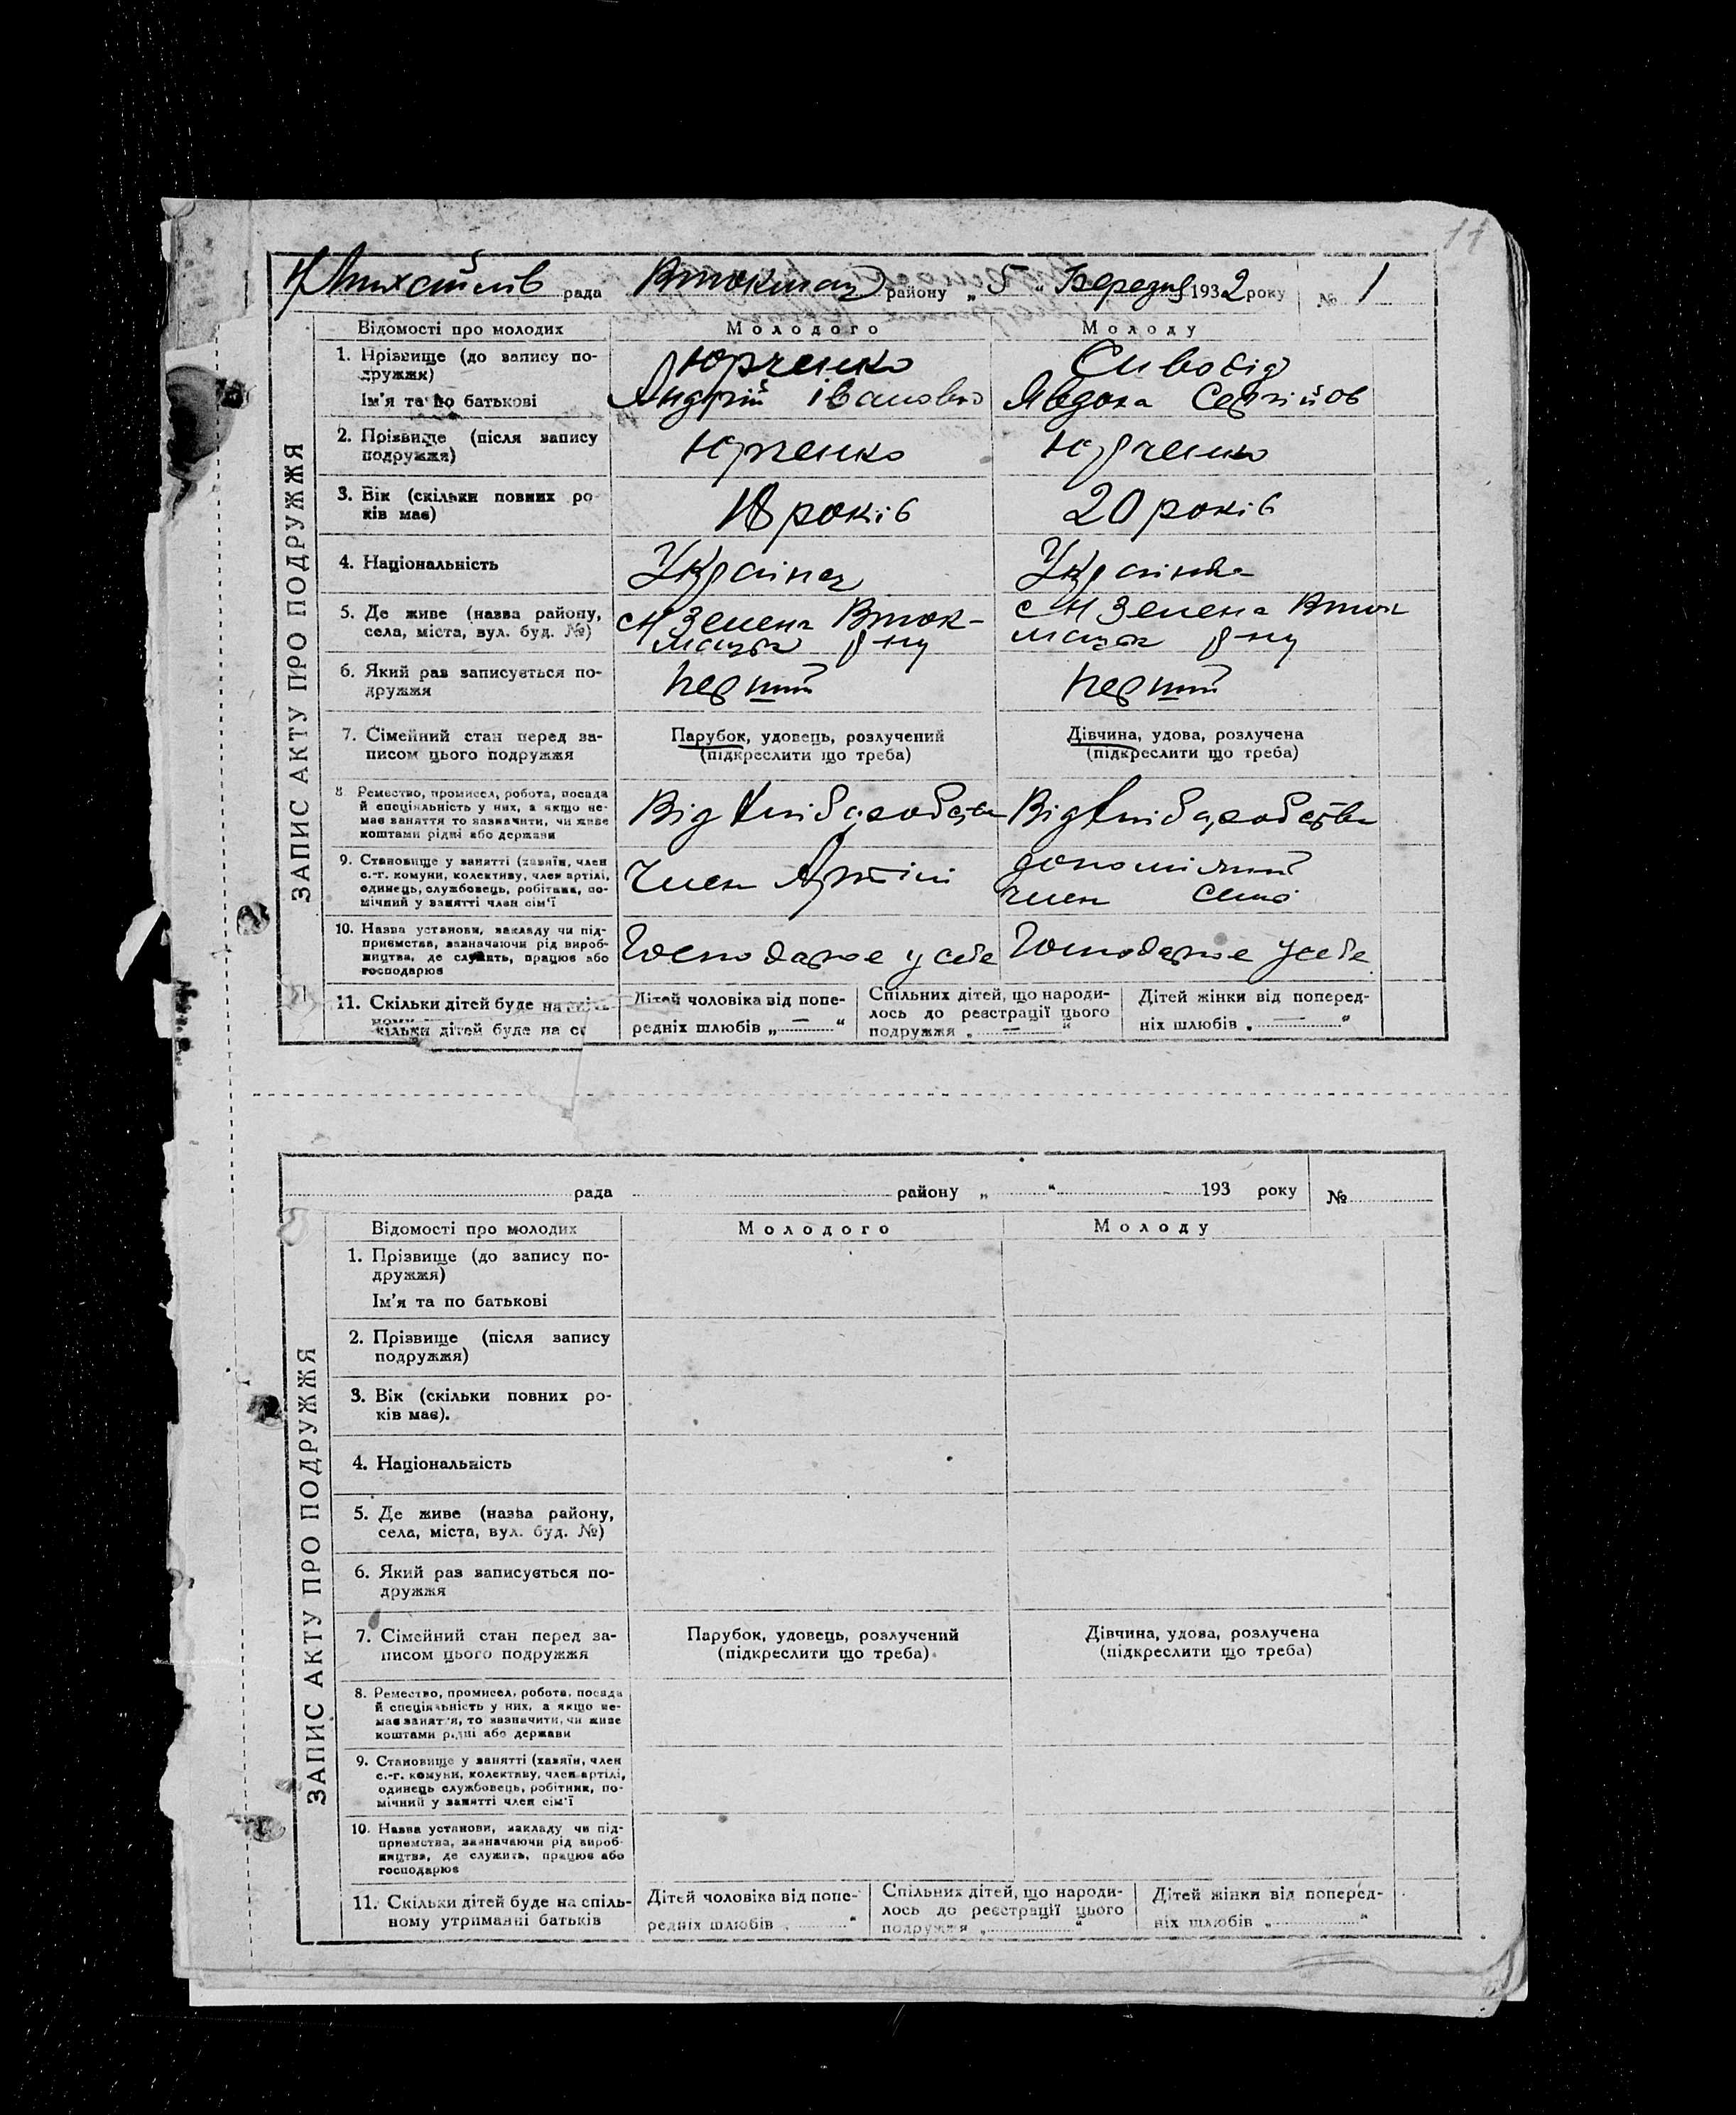 11
НМихайлів рада Втокмац району „ 5 “ Березня 1932 року № 1
ЗАПИС АКТУ ПРО ПОДРУЖЖЯ
Відомості про молодих Молодого Молоду
1. Прізвище (до запису по- Юрченко Сивобід
дружжя)
Ім'я та по батькові Андрій Іванович Явдоха Сергійов
2. Прізвище (після запису Юрченко Юрченко
подружжя)
3. Вік (скільки повних ро- 18 років 20 років
ків має)
4. Національність Українец Українка
5. Де живе (назва району, с Н Зелена Вток- с Н Зелена Вток
села, міста, вул. буд. №) мацьк р-ну мацьк р-ну
6. Який раз записується по- перший перший
дружжя
7. Сімейний стан перед за- Парубок, удовець, розлучений Дівчина, удова, розлучена
писом цього подружжя (підкреслити що треба) (підкреслити що треба)
8. Ремество, промисел, робота, посада
й спеціяльність у них, а якщо не- Від хлібаробства Від хлібаробства
має заняття то зазначити, чи живе
коштами рідні або держави
9. Становище у занятті (хазяїн, член допоміжний
с.-г. комуни, колективу, член артілі, Член Артілі
одинець, службовець, робітник, по- член семі
мічний у занятті член сім'ї
10. Назва установи, закладу чи під-
приємства, зазначаючи рід вироб- Господарює у себе Господарює у себе
ництва, де служить, працює або
господарює
11. Скільки дітей буде на Дітей чоловіка від попе- Спільних дітей, що народи- Дітей жінки від поперед-
кільки дітей буде на редніх шлюбів „ — “ лось до реєстрації цього ніх шлюбів „ — “
подружжя „ — “
рада району „ “ 193 року №
ЗАПИС АКТУ ПРО ПОДРУЖЖЯ
Відомості про молодих Молодого Молоду
1. Прізвище (до запису по-
дружжя)
Ім'я та по батькові
2. Прізвище (після запису
подружжя)
3. Вік (скільки повних ро-
ків має).
4. Національність
5. Де живе (назва району,
села, міста, вул. буд. №)
6. Який раз записується по-
дружжя
7. Сімейний стан перед за- Парубок, удовець, розлучений Дівчина, удова, розлучена
писом цього подружжя (підкреслити що треба) (підкреслити що треба)
8. Ремество, промисел, робота, посада
й спеціяльність у них, а якщо не-
має заняття, то зазначити, чи живе
коштами рідні або держави
9. Становище у занятті (хазяїн, член
с.-г. комуни, колективу, член артілі,
одинець службовець, робітник, по-
мічний у занятті член сім'ї
10. Назва установи, закладу чи під-
приємства, зазначаючи рід вироб-
ництва, де служить, працює або
господарює
11. Скільки дітей буде на спіль- Дітей чоловіка від попе- Спільних дітей, що народи- Дітей жінки від поперед-
ному утриманні батьків редніх шлюбів „ “ лось до реєстрації цього ніх шлюбів „ “
подружжя „ “